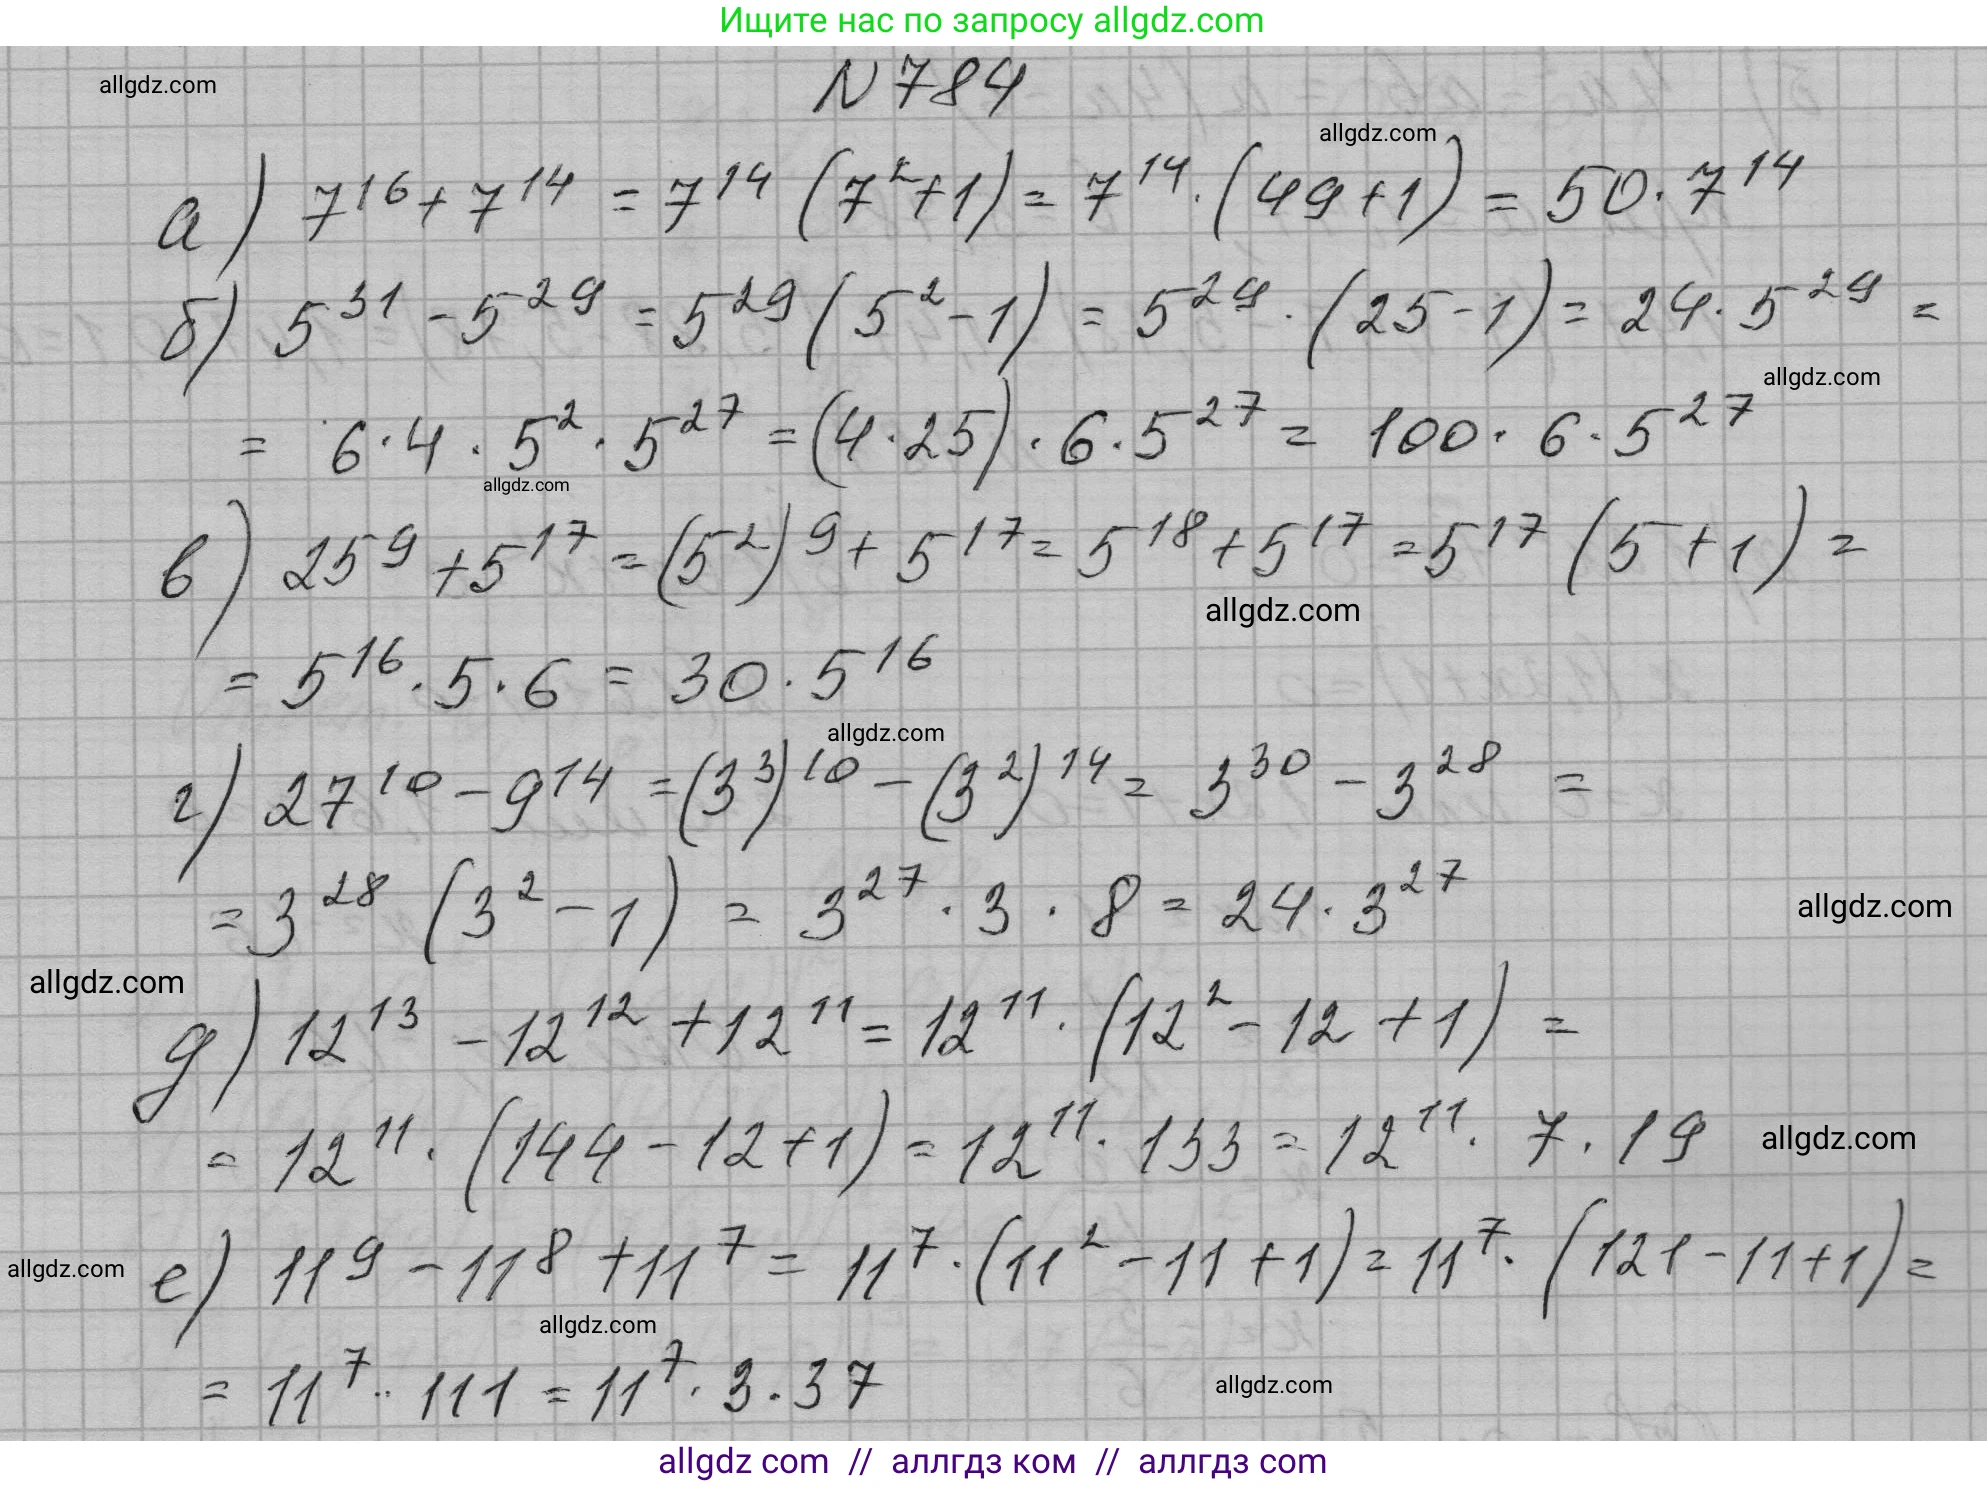 Ищите нас по запросу allgdz.com
N 784
allgdz.com
allgdz.com
а) 7^16 + 7^14 = 7^14 (7^2 + 1) = 7^14 · (49 + 1) = 50 · 7^14
б) 5^31 - 5^29 = 5^29 (5^2 - 1) = 5^29 · (25 - 1) = 24 · 5^29 =
allgdz.com
= 6 · 4 · 5^2 · 5^27 = (4 · 25) · 6 · 5^27 = 100 · 6 · 5^27
allgdz.com
в) 25^9 + 5^17 = (5^2)^9 + 5^17 = 5^18 + 5^17 = 5^17 (5 + 1) =
allgdz.com
= 5^16 · 5 · 6 = 30 · 5^16
allgdz.com
г) 27^10 - 9^14 = (3^3)^10 - (3^2)^14 = 3^30 - 3^28 =
= 3^28 (3^2 - 1) = 3^27 · 3 · 8 = 24 · 3^27
allgdz.com
allgdz.com
д) 12^13 - 12^12 + 12^11 = 12^11 · (12^2 - 12 + 1) =
= 12^11 · (144 - 12 + 1) = 12^11 · 133 = 12^11 · 7 · 19
allgdz.com
allgdz.com
е) 11^9 - 11^8 + 11^7 = 11^7 · (11^2 - 11 + 1) = 11^7 · (121 - 11 + 1) =
allgdz.com
= 11^7 · 111 = 11^7 · 3 · 37
allgdz.com
allgdz com // аллгдз ком // аллгдз com